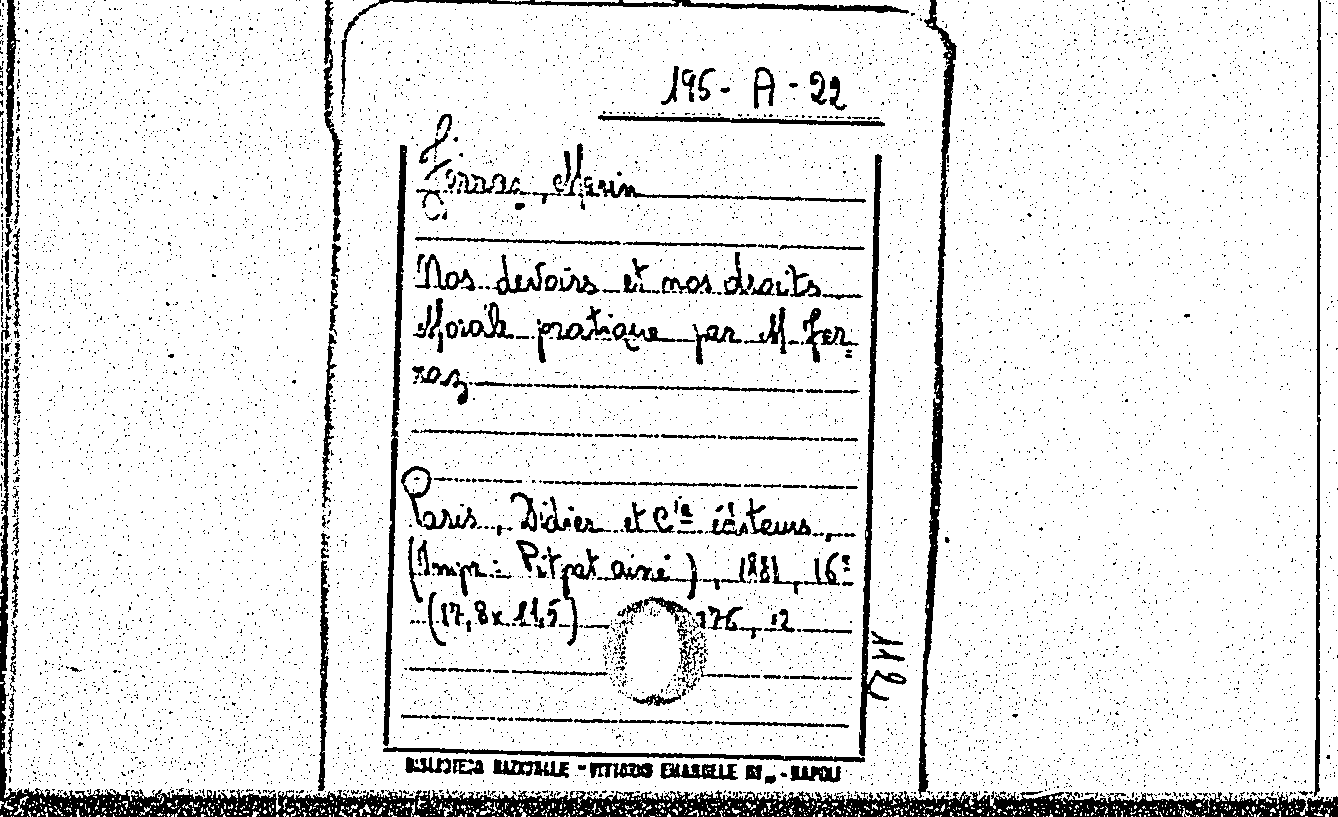 195 - A - 22
Ferraz, Marin
Nos devoirs et nos droits
Morale pratique par M. Fer=
raz
Paris, Didier et Cie éditeurs,
(Impr: Pitrat ainé), 1881, 16º
(17,8x11,5) 376, 12
112
BIBLIOTECA NAZIONALE - VITTORIO EMANUELE III - NAPOLI